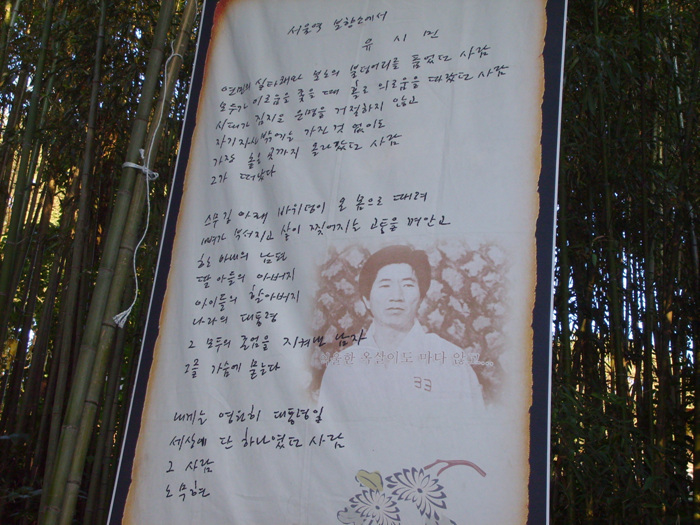 서울역 분향소에서
유 시 민
연민의 실타래와 분노의 불덩어리를 품었던 사람
모두가 이로움을 좇을 때 홀로 의로움을 따랐던 사람
시대가 짐지운 운명을 거절하지 않고
자기 자신밖에는 가진 것 없이도
가장 높은 곳까지 올라갔던 사람
그가 떠났다
스무길 아래 바위덩이 온 몸으로 때려
뼈가 부서지고 살이 찢어지는 고통을 껴안고
한 아내의 남편
딸 아들의 아버지
아이들의 할아버지
나라의 대통령
그 모두의 존엄을 지켜낸 남자
그를 가슴에 묻는다
옥살이도 마다 않고
33
내게는 영원히 대통령일
세상에 단 하나였던 사람
그 사람
노무현